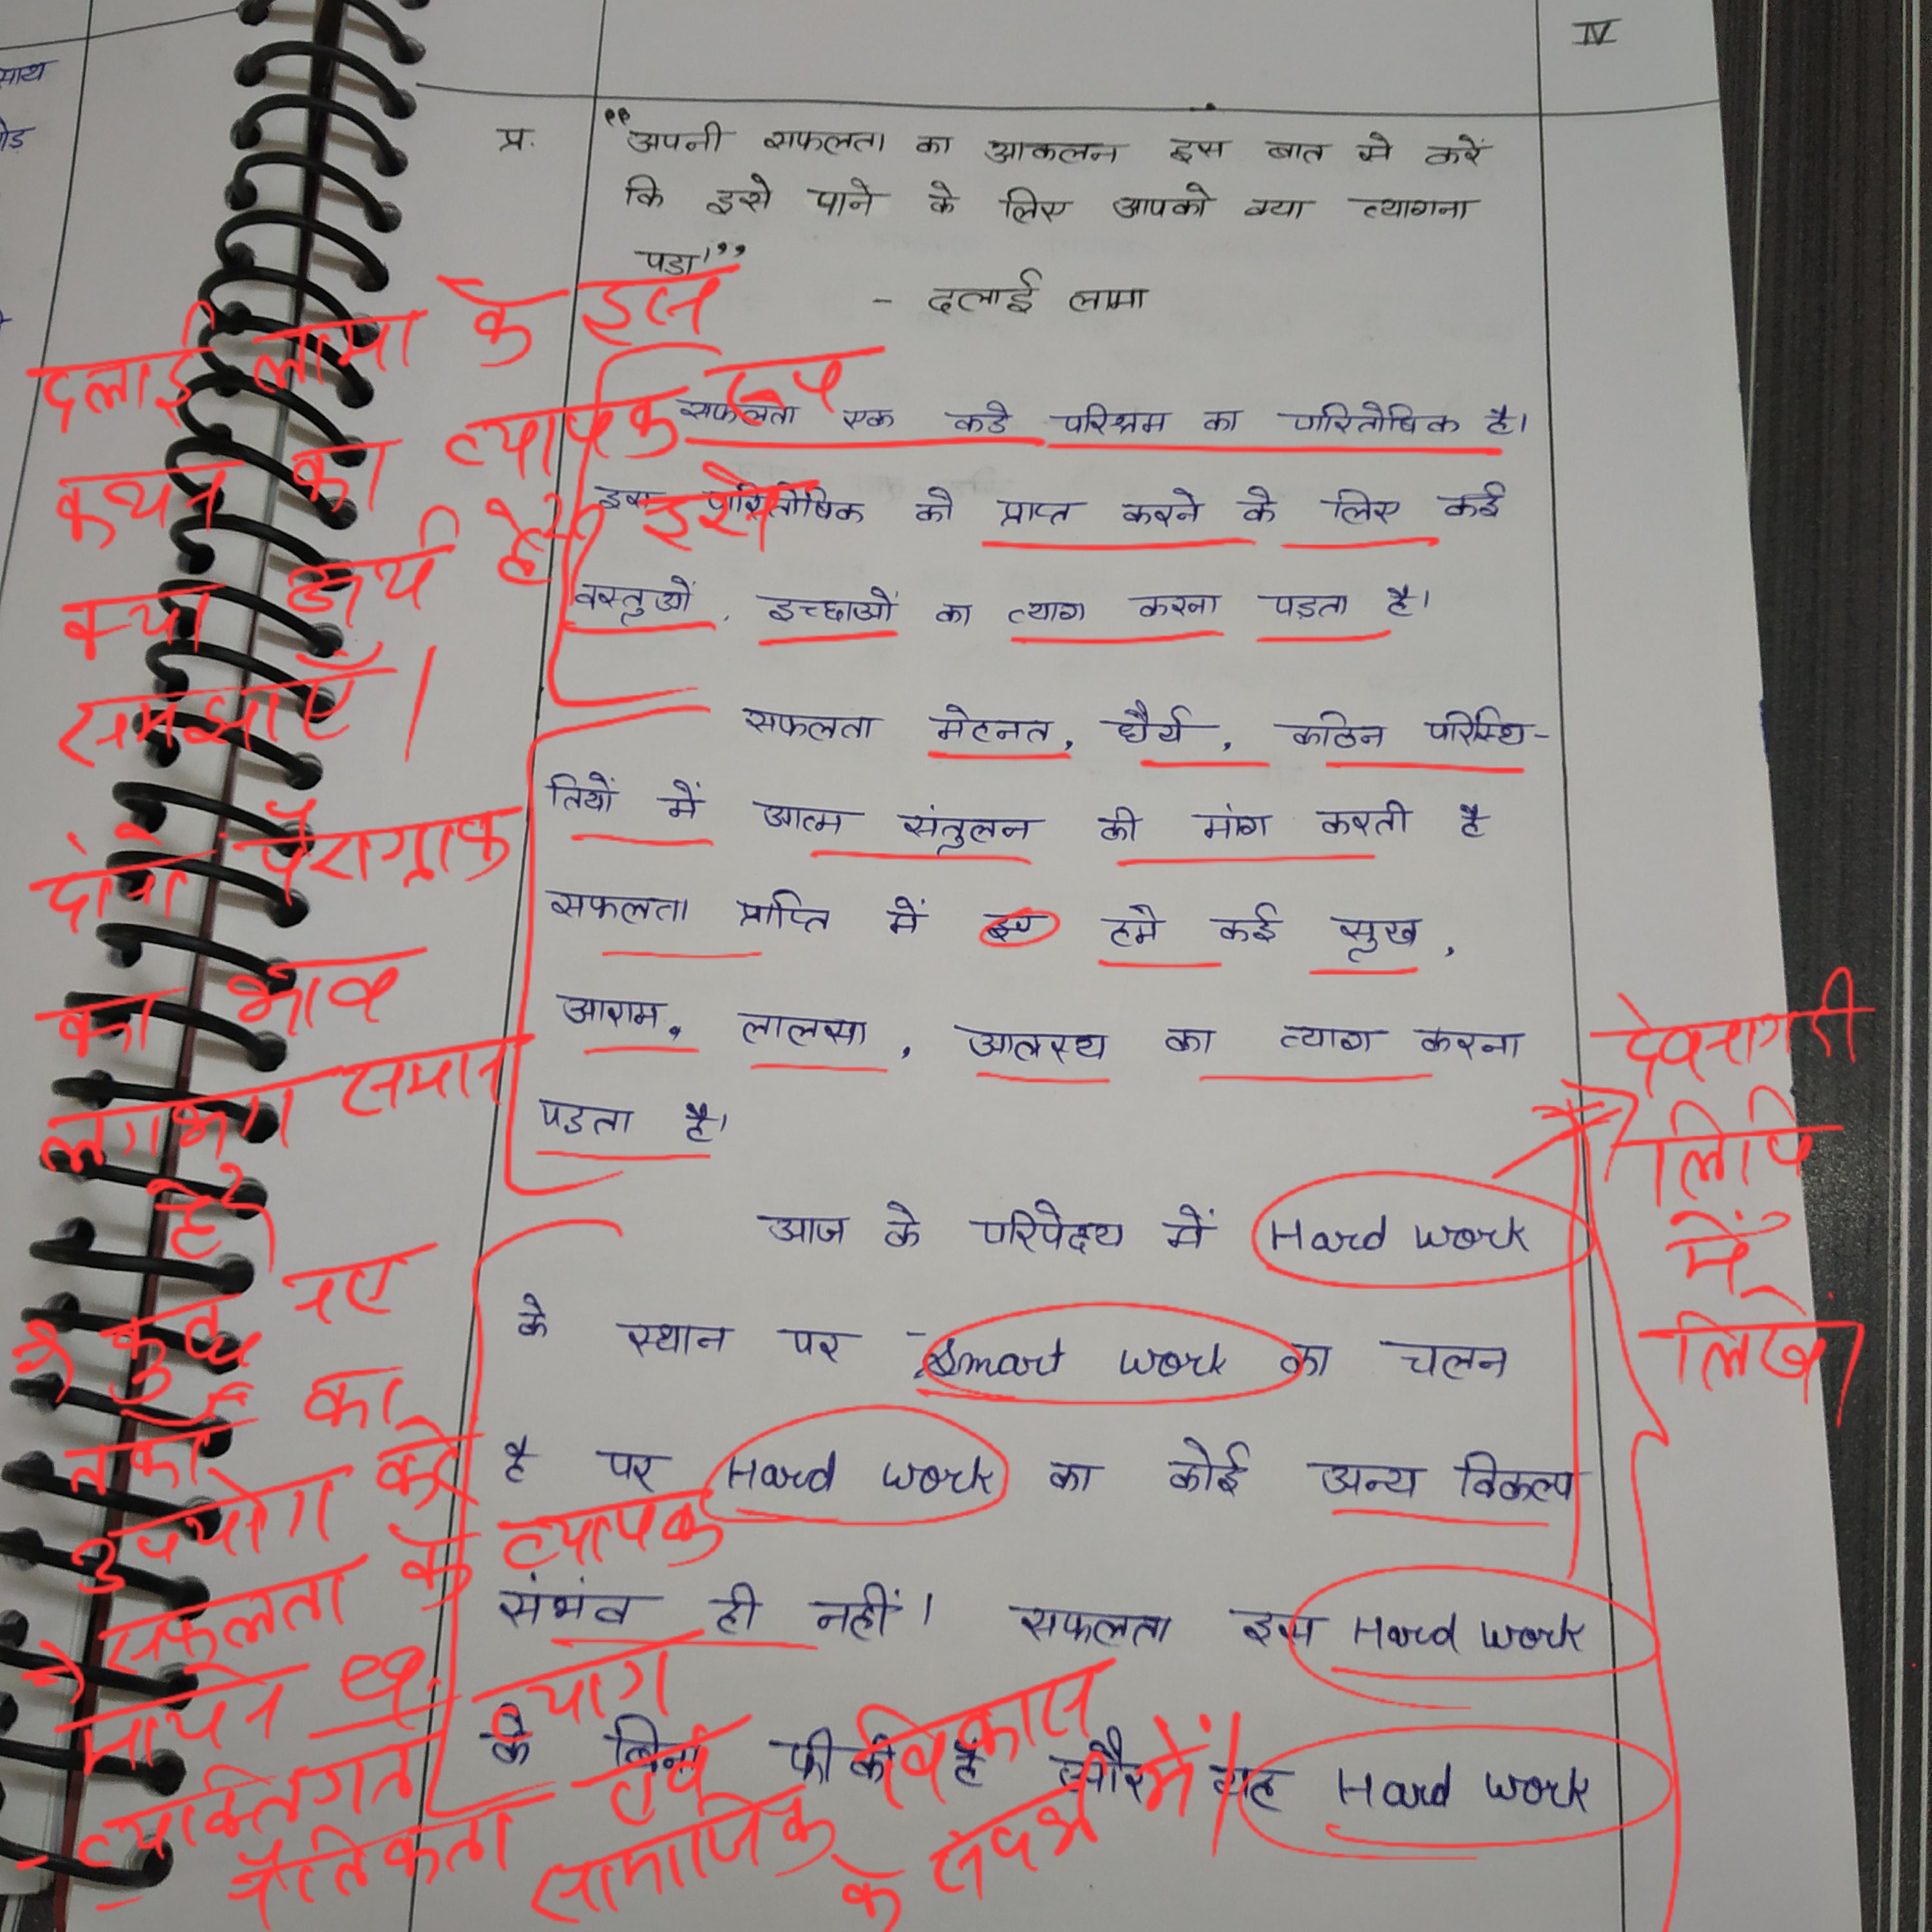 IV
साथ
प्र. “अपनी सफलता का आकलन इस बात से करें
कि इसे पाने के लिए आपको क्या त्यागना
पडा।”
- दलाई लामा
सफलता एक कडे परिश्रम का पारितोषिक है।
इस पारितोषिक को प्राप्त करने के लिए कई
वस्तुओं, इच्छाओं का त्याग करना पड़ता है।
सफलता मेहनत, धैर्य, कठिन परिस्थि-
तियों में आत्म संतुलन की मांग करती है
सफलता प्राप्ति में हमे कई सुख,
आराम, लालसा, आलस्य का त्याग करना
पडता है।
आज के परिपेक्ष्य में Hard work
के स्थान पर Smart work का चलन
है पर Hard work का कोई अन्य विकल्प
संभंव ही नहीं। सफलता इस Hard work
के बिना फीकी है और यह Hard work
दलाई लामा के इस
कथन का व्यापक रूप
क्या अर्थ है? इसे
समझाएँ।
दोनों पैराग्राफ
का भाव
लगभग समान
है।
कुछ नए
तर्कों का
उपयोग करें
सफलता के व्यापक
मायने eg.
व्यक्तिगत त्याग
नैतिकता एवं विकास
सामाजिक के संदर्भ में।
देवनागरी
लिपि
में
लिखें।